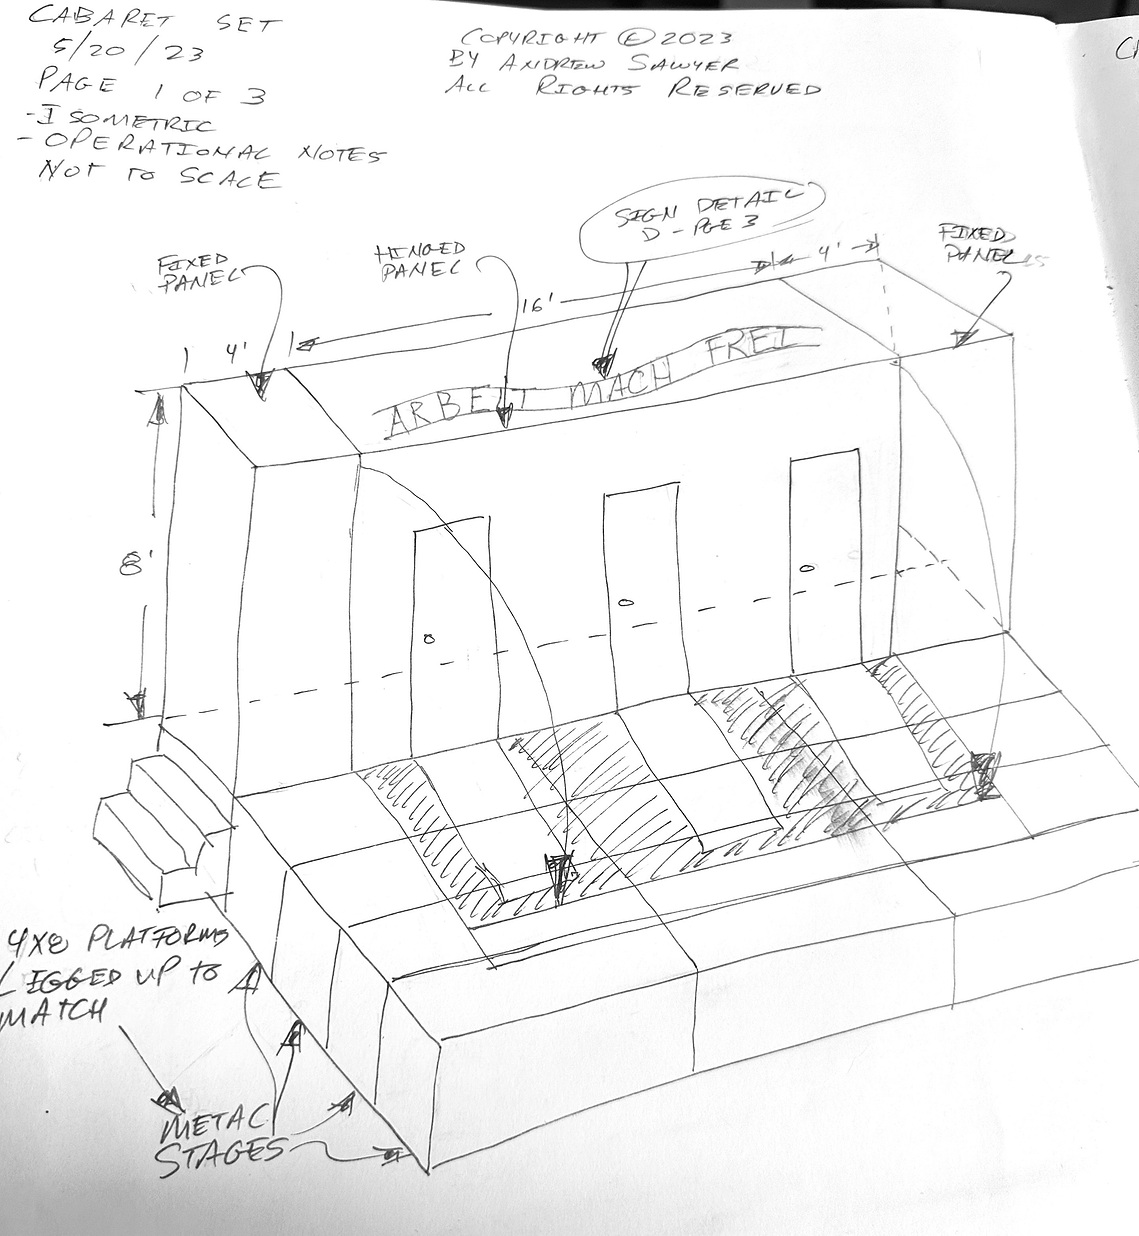 CABARET SET
5/20/23
PAGE 1 OF 3
- ISOMETRIC
- OPERATIONAL NOTES
NOT TO SCALE
COPYRIGHT © 2023
BY ANDREW SAWYER
ALL RIGHTS RESERVED
SIGN DETAIL
D - PGE 3
FIXED
PANEL
HINGED
PANEL
FIXED
PANEL
4'
16'
4'
ARBEIT MACH FREI
8'
4X8 PLATFORMS
LEGGED UP TO
MATCH
METAL
STAGES